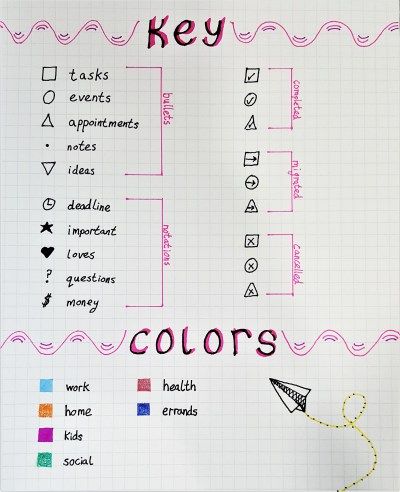 Key
tasks
events
appointments
notes
ideas
bullets
deadline
important
loves
? questions
$ money
notations
completed
migrated
cancelled
colors
work
home
kids
social
health
errands